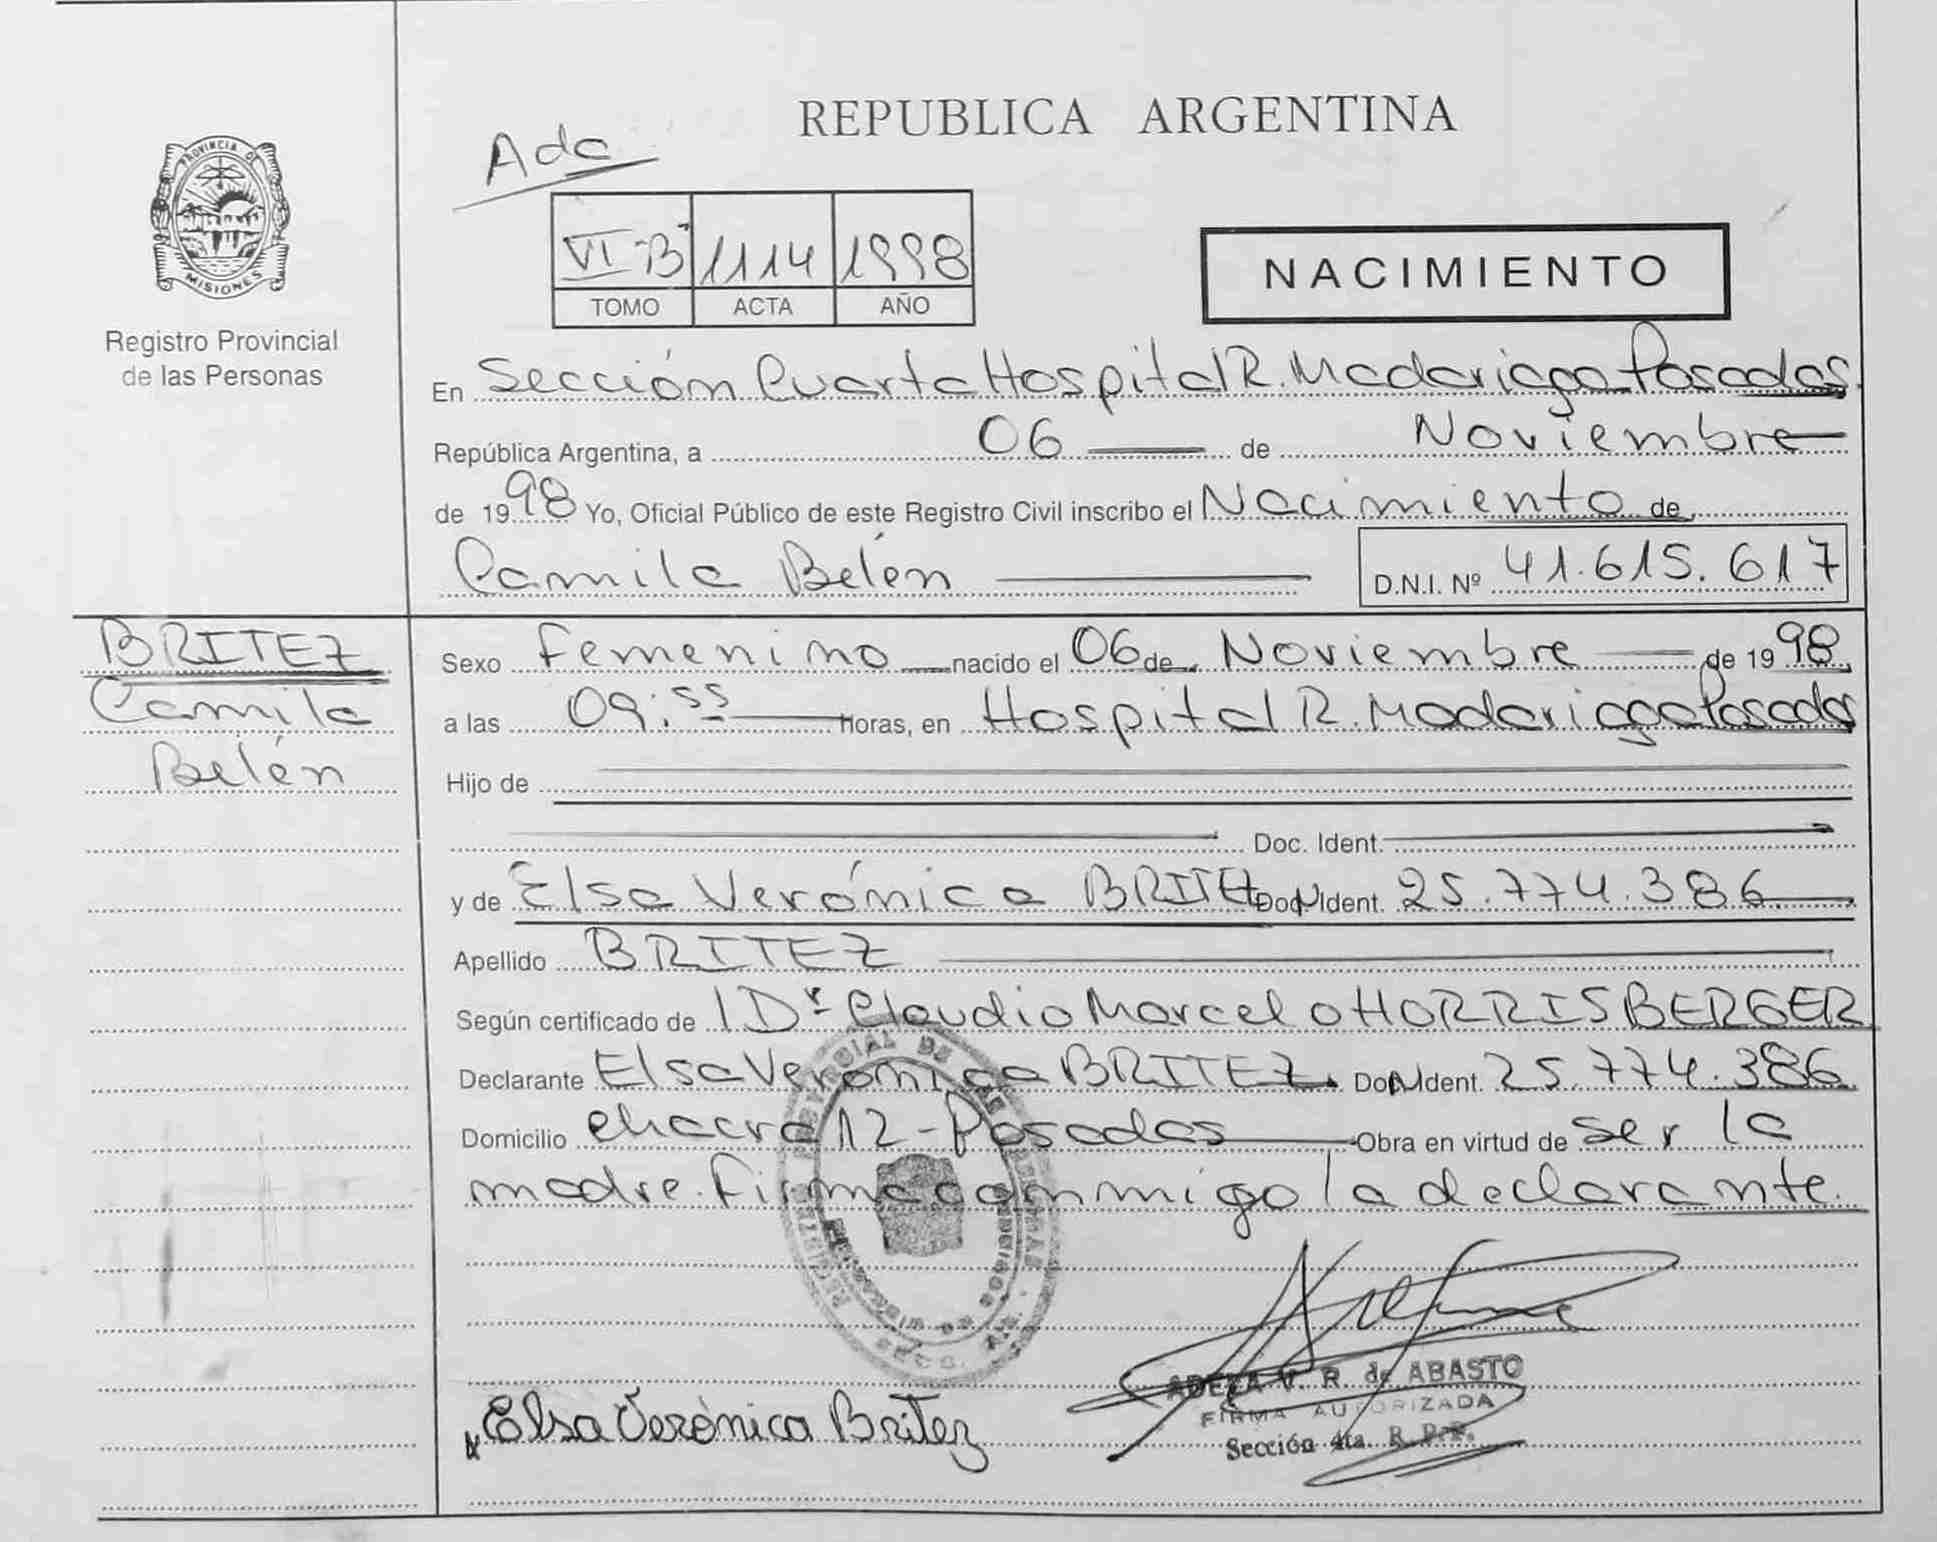 REPUBLICA ARGENTINA
Ada
PROVINCIA DE
MISIONES
Registro Provincial
de las Personas
VI-"B" 1114 1998
TOMO ACTA AÑO
NACIMIENTO
En Sección Cuarta Hospital R. Madariaga Posadas.
República Argentina, a 06 de Noviembre
de 1998 Yo, Oficial Público de este Registro Civil inscribo el Nacimiento de
Camila Belén D.N.I. Nº 41.615.617
BRITEZ
Camila
Belén
Sexo Femenino nacido el 06 de Noviembre de 1998,
a las 09:55 Horas, en Hospital R. Madariaga Posadas
Hijo de
Doc. Ident.
y de Elsa Verónica BRITEZ Doc. Ident. 25.774.386
Apellido BRITEZ
Según certificado de 1 Dr Claudio Marcelo HORRISBERGER
Declarante Elsa Verónica BRITEZ. Doc. Ident. 25.774.386
Domicilio chacra 12 - Posadas Obra en virtud de ser la
madre. Firma conmigo la declarante.
ADELA V. R. de ABASTO
FIRMA AUTORIZADA
Sección 4ta. R. P. P.
Elsa Verónica Britez